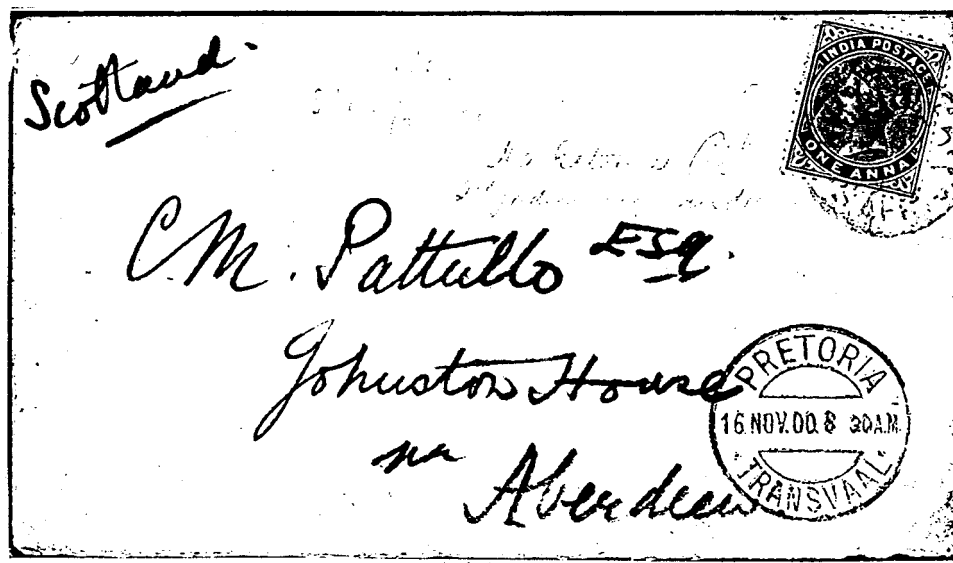 Scotland.
INDIA POSTAGE
ONE ANNA
C. M. Pattullo Esq.
Johnston House
nr
Aberdeen
PRETORIA
16 NOV. 00. 8 30 A.M.
TRANSVAAL